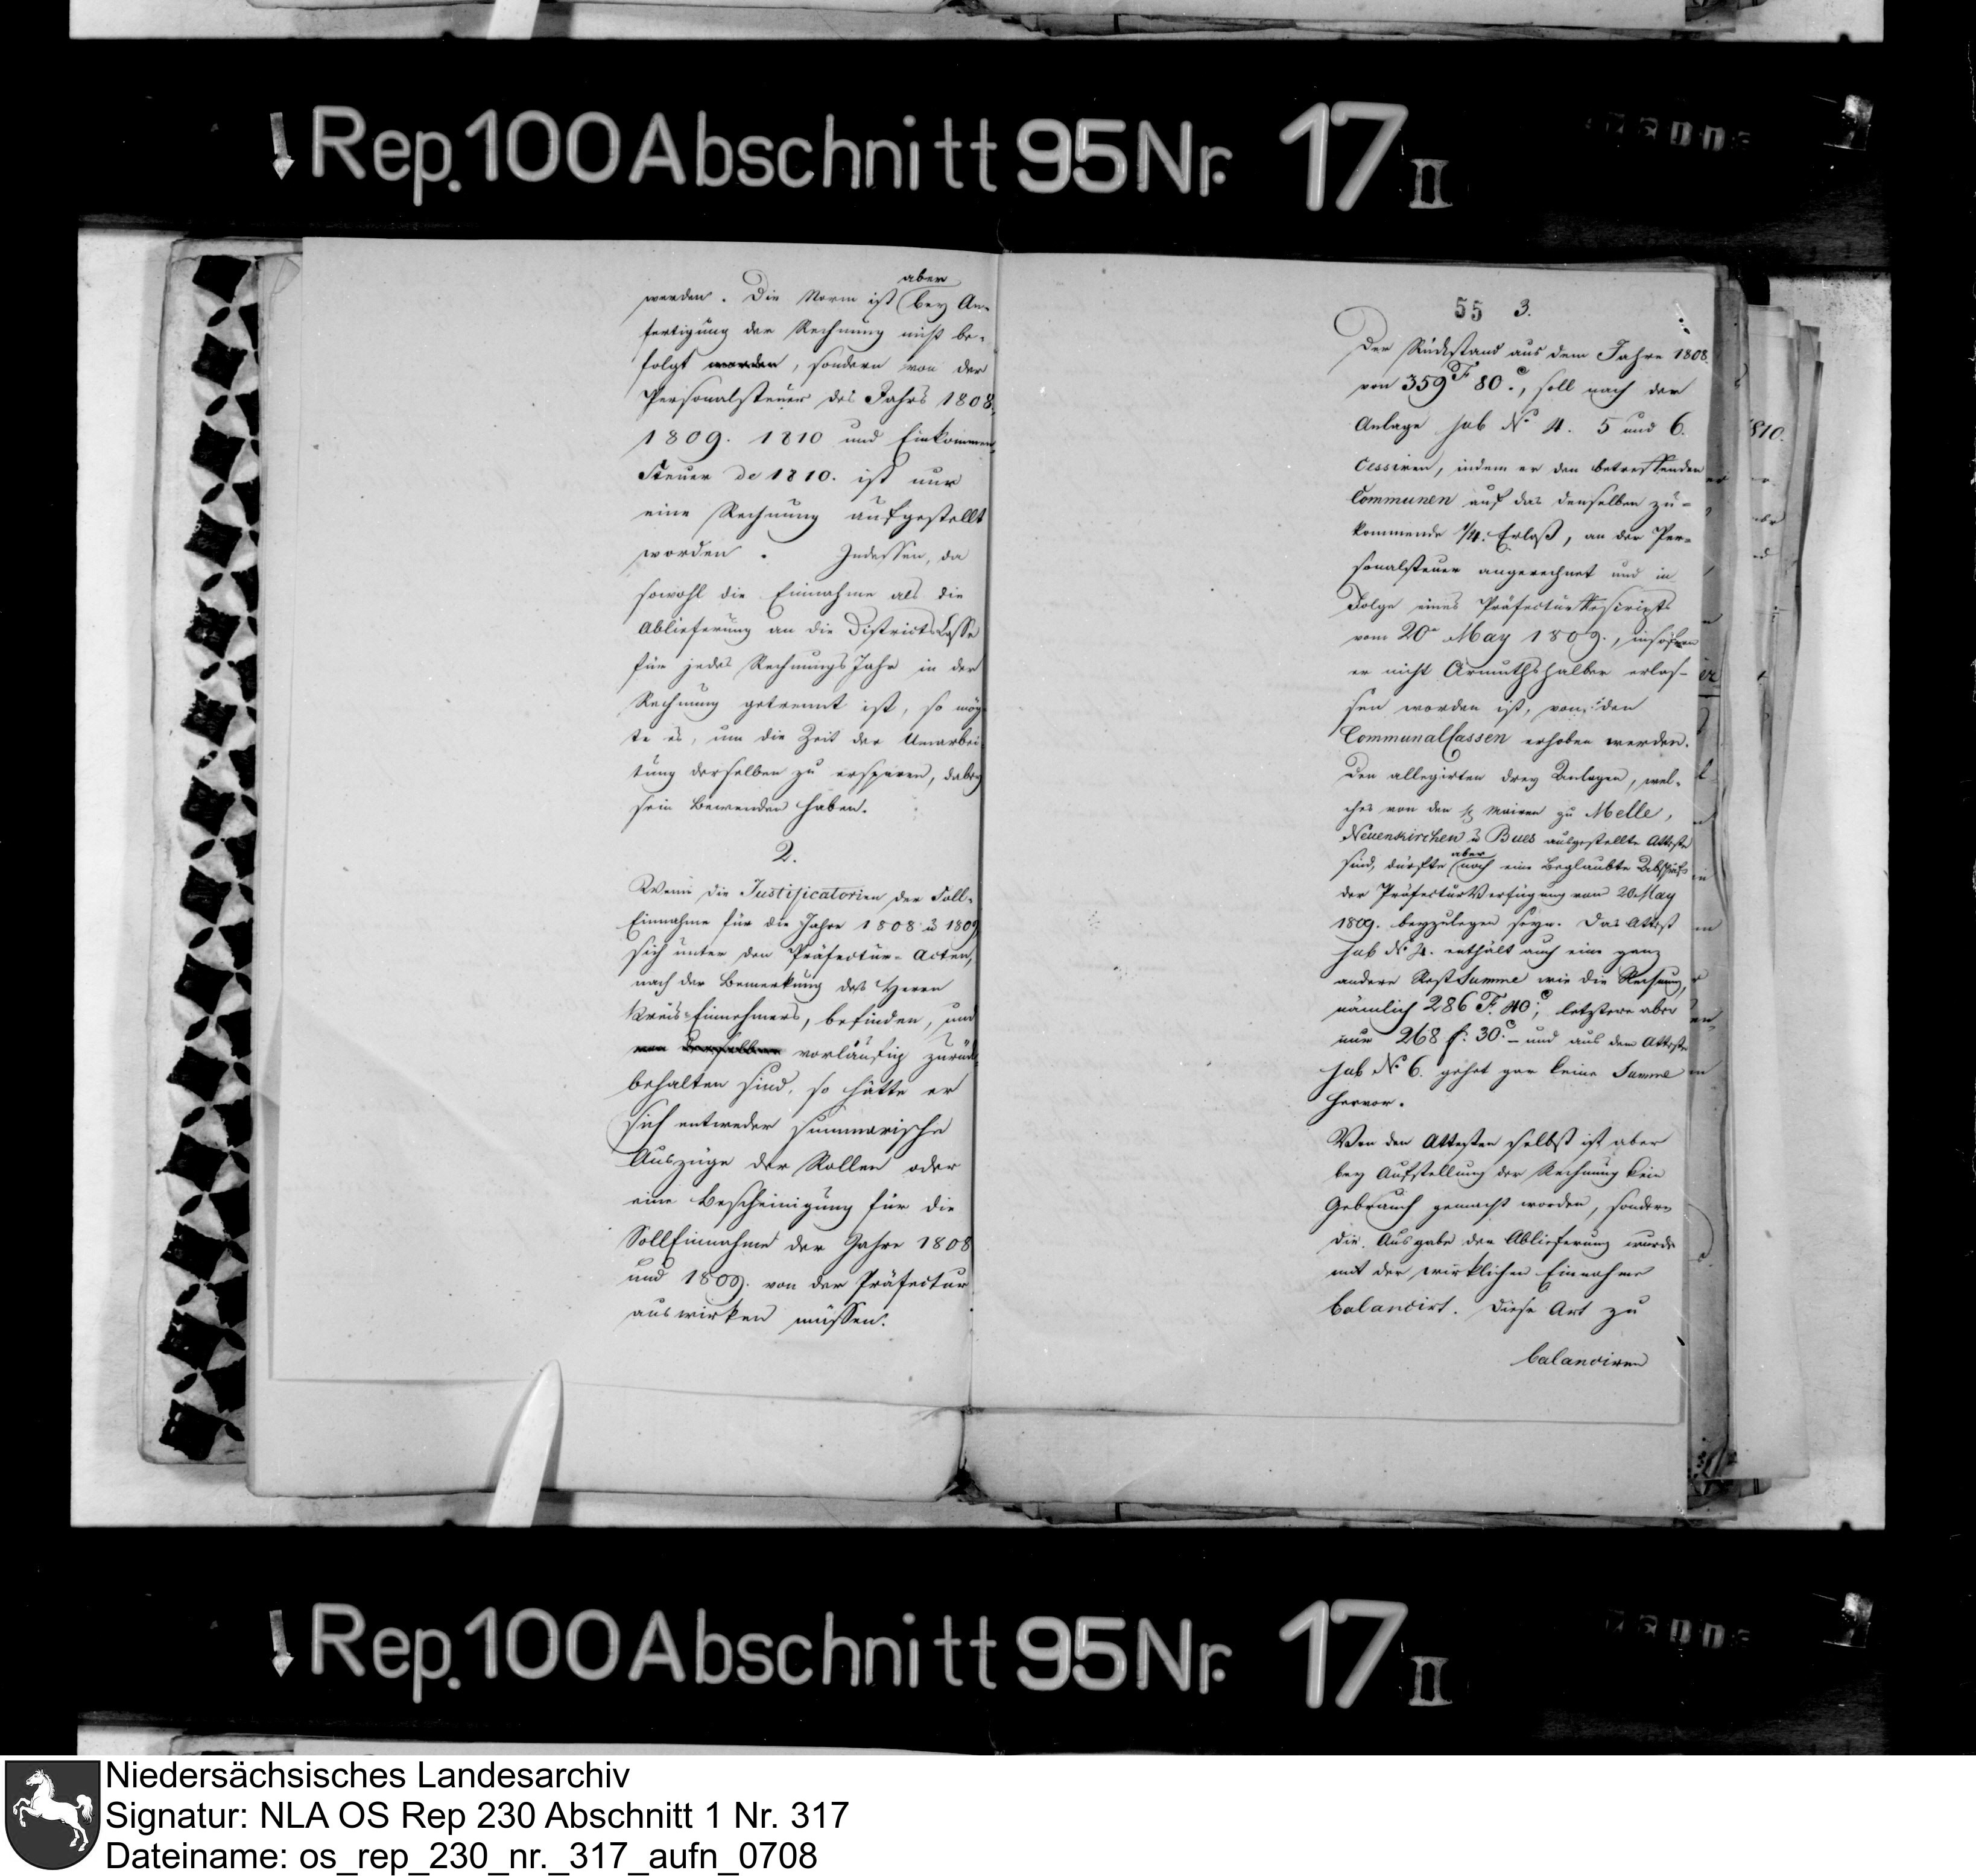 Rep. 100 Abschnitt 95 Nr. 17 II
aber
werden. Die Norm ist bey An-
fertigung der Rechnung nicht be-
folgt worden, sondern von der
Personalsteuer des Jahrs 1808.
1809. 1810 und Einkommen
Steuer de 1810. ist nur
eine Rechnung aufgestellt
worden. Indessen, da
sowohl die Einnahme als die
Ablieferung an die DistrictsCasse
für jedes RechnungsJahr in der
Rechnung getrennt ist, so mög-
te es, um die Zeit der Umarbei-
tung derselben zu ersparen, dabey
sein Bewenden haben.
2.
Wenn die Justificatorien der Soll-
Einnahme für die Jahre 1808 & 1809
sich unter den Präfectur-Acten,
nach der Bemerkung des Herrn
Kreis-Einnehmers, befinden, und
von derselben vorläufig zurück
behalten sind, so hätte er
sich entweder summarische
Auszüge der Rollen oder
eine Bescheinigung für die
SollEinnahme der Jahre 1808
und 1809. von der Präfectur
auswirken müssen.
55 3.
Der Rückstand aus dem Jahre 1808
von 359 F. 80 c., soll nach der
Anlage sub No 4. 5 und 6.
cessiren, indem er den betreffenden
Communen auf das denselben zu-
kommende 1/4. Erlaß, an der Per-
sonalsteuer angerechnet und in
Folge eines PräfecturRescripts
vom 20n May 1809., insofern
er nicht Armuthshalber erlas-
sen worden ist, von den
CommunalCassen erhoben werden.
Den allegirten drey Anlagen, wel-
ches von den Mairen zu Melle,
Neuenkirchen & Buer ausgestellte Atteste
aber
sind, dürfte noch eine beglaubte Abschrift
der PräfecturVerfügung vom 20. May
1809. beyzulegen seyn. Das Attest
sub No 4. enthält auch eine ganz
andere RestSumme wie die Rechnung,
nämlich 286 F. 40 c; letztere aber
nur 268 f. 30 c. und aus dem Atteste
sub No 6. gehet gar keine Summe
hervor.
Von den Attesten selbst ist aber
bey Aufstellung der Rechnung kein
Gebrauch gemacht worden, sondern
die Ausgabe der Ablieferung wurde
mit der wirklichen Einnahme
balancirt. Diese Art zu
balanciren
1810.
Rep. 100 Abschnitt 95 Nr. 17 II
Niedersächsisches Landesarchiv
Signatur: NLA OS Rep 230 Abschnitt 1 Nr. 317
Dateiname: os_rep_230_nr._317_aufn_0708